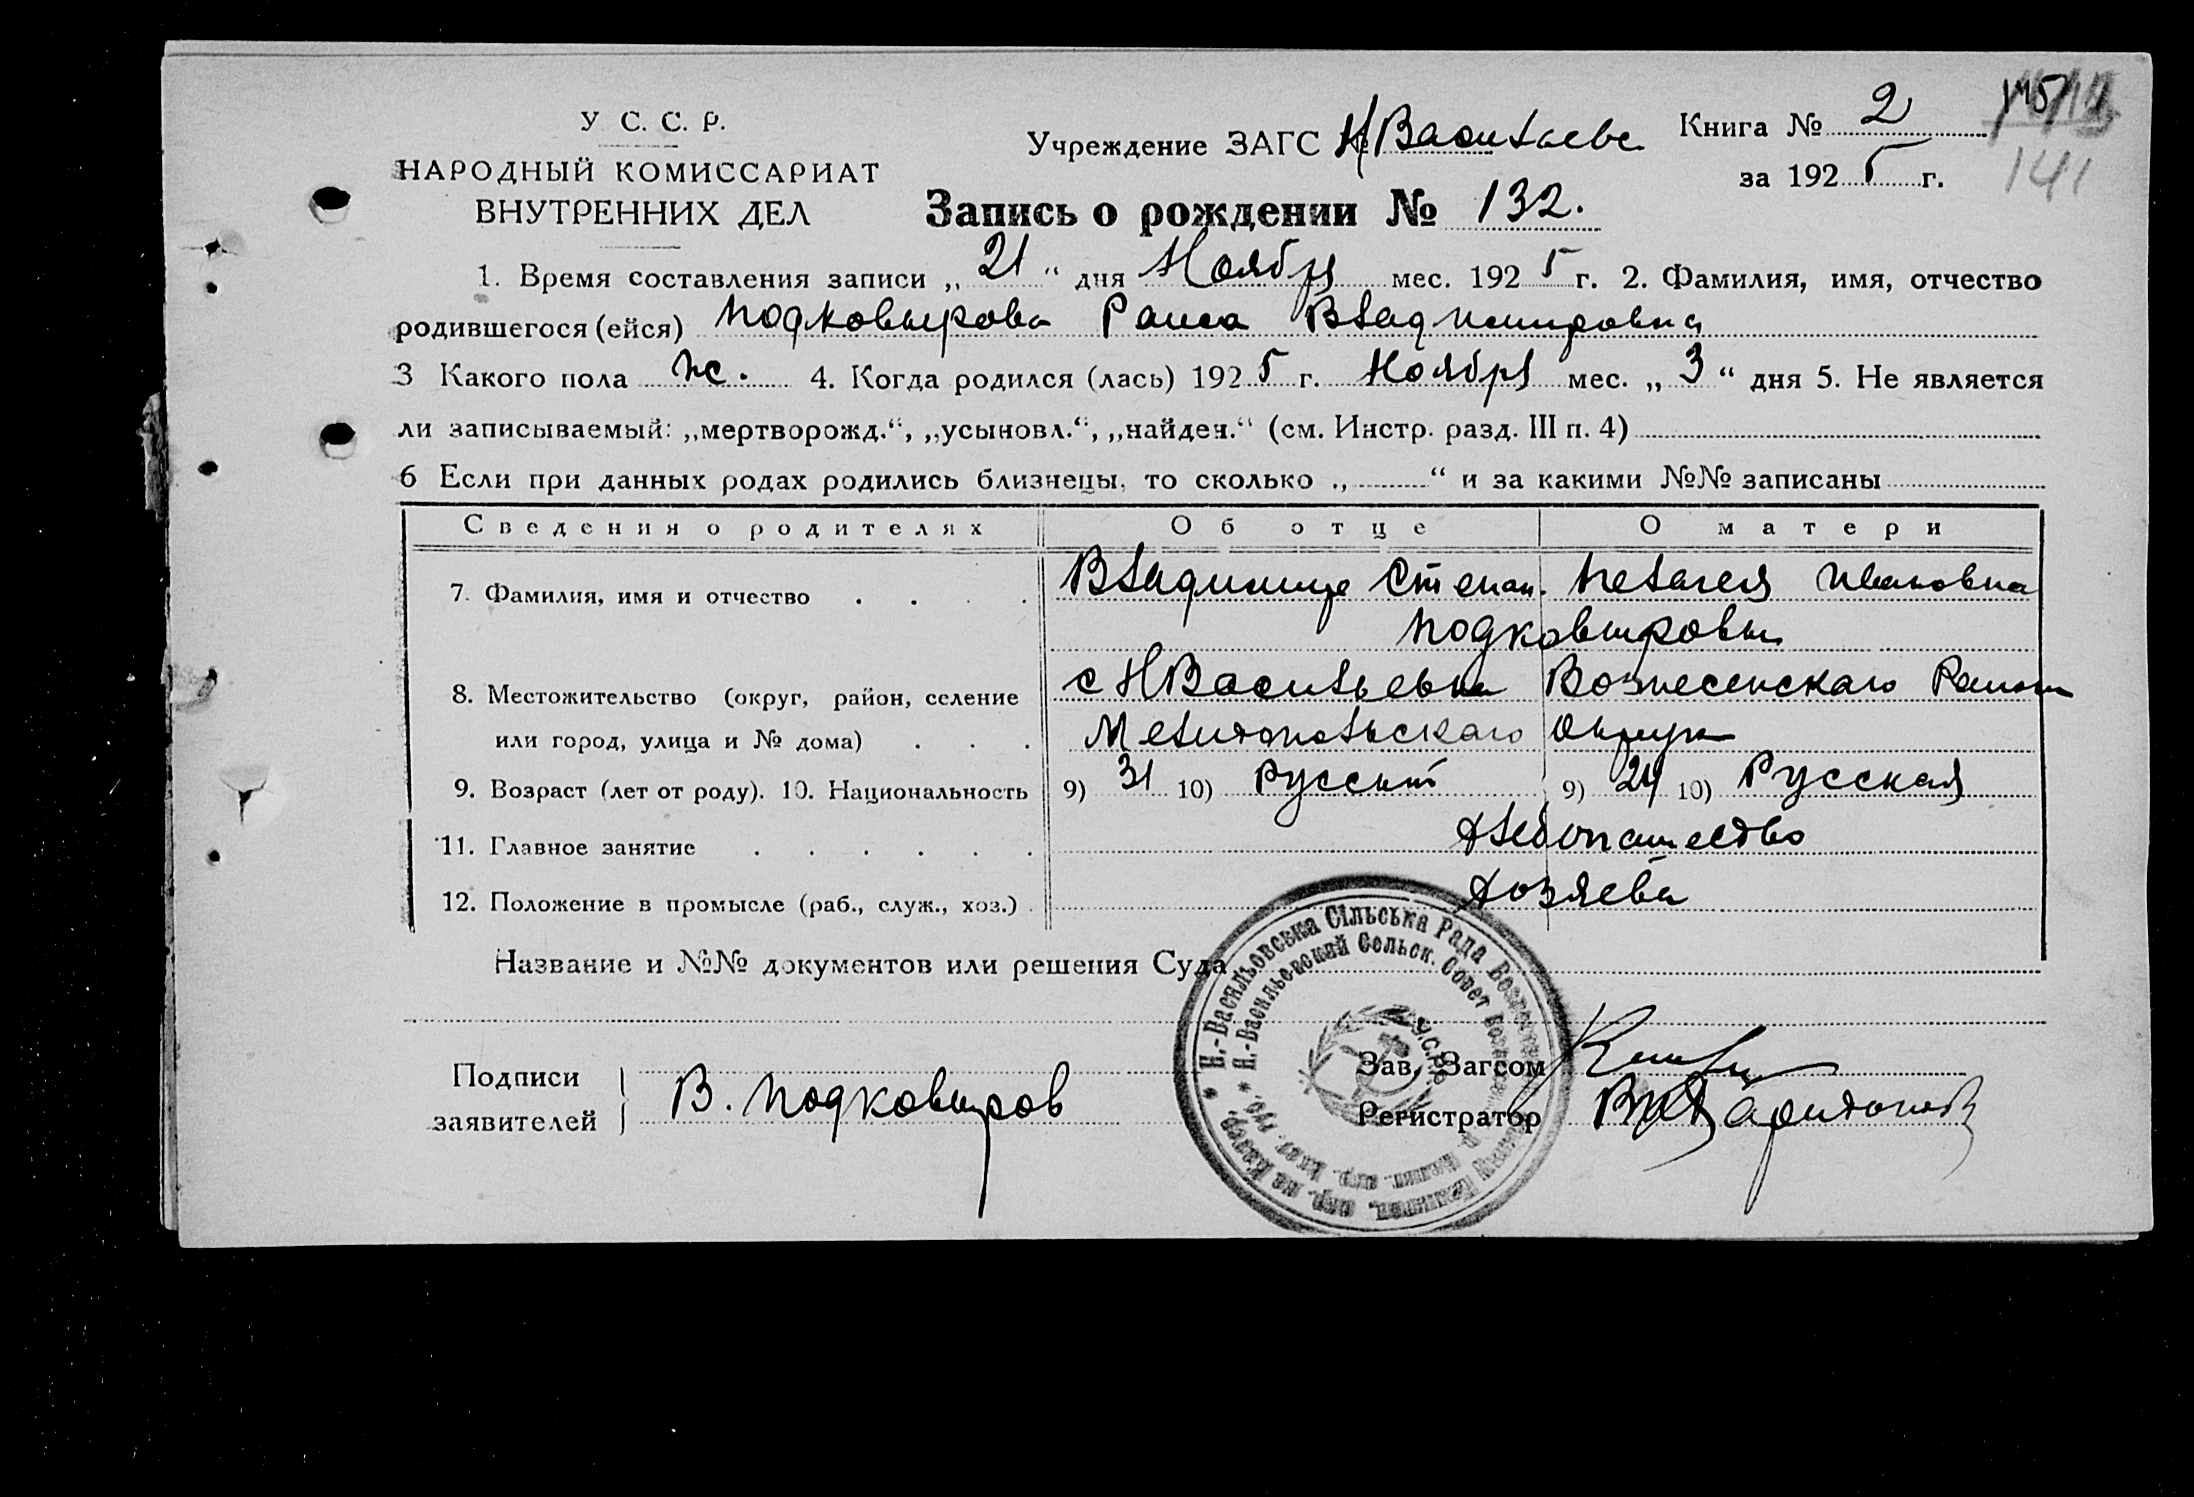 У С. С. Р.
НАРОДНЫЙ КОМИССАРИАТ
ВНУТРЕННИХ ДЕЛ
Учреждение ЗАГС № НВасильевс
Книга № 2
за 1925 г.
141
Запись о рождении № 132.
1. Время составления записи „21“ дня Ноября мес. 1925 г. 2. Фамилия, имя, отчество
родившегося (ейся) Подковырова Раиса Владимировна
3 Какого пола ж. 4. Когда родился (лась) 1925 г. Ноября мес. „3“ дня 5. Не является
ли записываемый: „мертворожд.“, „усыновл.“, „найден.“ (см. Инстр. разд. III п. 4)
6 Если при данных родах родились близнецы, то сколько „ “ и за какими №№ записаны
Сведения о родителях Об отце О матери
7. Фамилия, имя и отчество Владимир Степан. Пелагея Ивановна
Подковыровы
8. Местожительство (округ, район, селение с НВасильевка Вознесенскаго Района
или город, улица и № дома) Мелитопольскаго Округа
9. Возраст (лет от роду). 10. Национальность 9) 31 10) Русский 9) 24 10) Русская
11. Главное занятие Хлебопашество
12. Положение в промысле (раб., служ., хоз.) Хозяева
Название и №№ документов или решения Суда
Н.-Васильовська Сільська Рада
Н.-Васильевский Сельск. Совет
У.С.Р.Р.
Подписи
заявителей
В. Подковыров
Зав. Загсом
Регистратор Харитонов